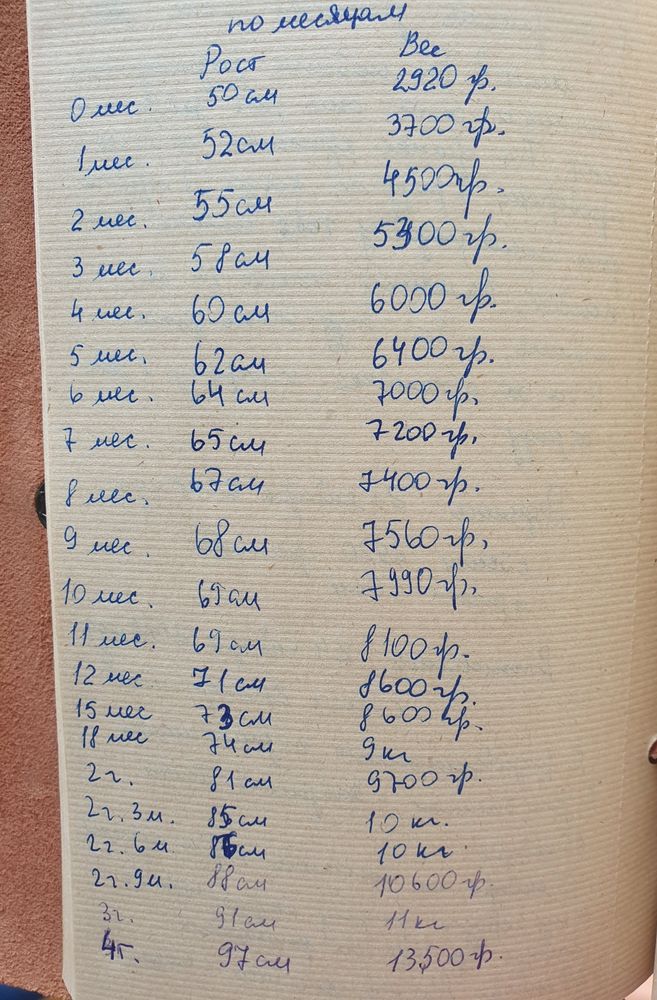 по месяцам
Рост Вес
0 мес. 50 см 2920 гр.
1 мес. 52 см 3700 гр.
2 мес. 55 см 4500 гр.
3 мес. 58 см 5300 гр.
4 мес. 60 см 6000 гр.
5 мес. 62 см 6400 гр.
6 мес. 64 см 7000 гр.
7 мес. 65 см 7200 гр.
8 мес. 67 см 7400 гр.
9 мес. 68 см 7560 гр.
10 мес. 69 см 7990 гр.
11 мес. 69 см 8100 гр.
12 мес 71 см 8600 гр.
15 мес 73 см 8600 гр.
18 мес 74 см 9 кг
2 г. 81 см 9700 гр.
2 г. 3 м. 85 см 10 кг.
2 г. 6 м. 86 см 10 кг.
2 г. 9 м. 88 см 10600 гр.
3 г. 91 см 11 кг
4 г. 97 см 13,500 гр.